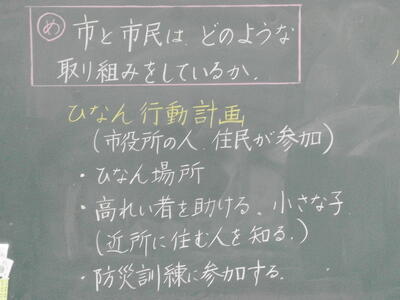 め 市と市民は、どのような
取り組みをしているか。
ひなん行動計画
(市役所の人、住民が参加)
・ひなん場所
・高れい者を助ける、小さな子
(近所に住む人を知る。)
・防災訓練に参加する。